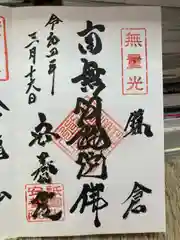 無量光
鎌倉
南無阿弥陀佛
令和四年
三月十九日
安養院